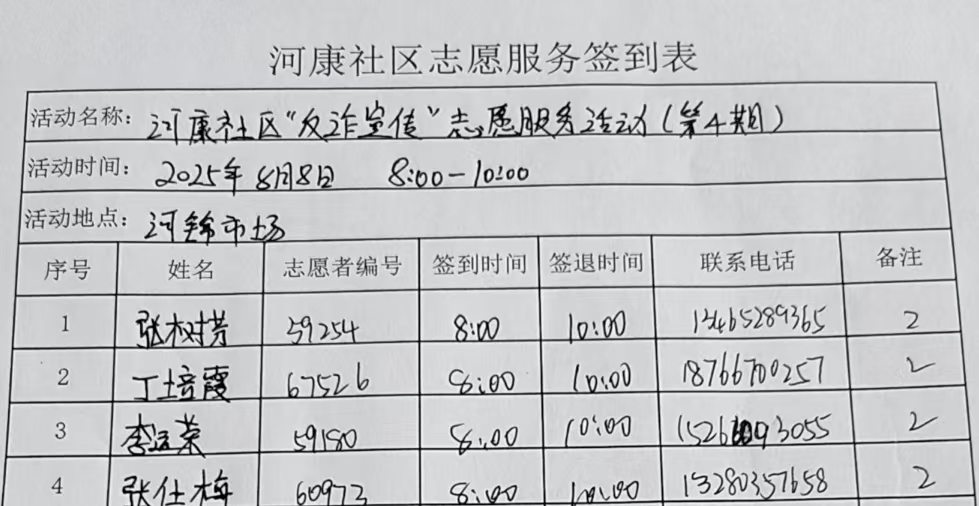 河康社区志愿服务签到表
活动名称: 河康社区“反诈宣传”志愿服务活动(第4期)
活动时间: 2025年8月8日 8:00-10:00
活动地点: 河锦市场
序号 姓名 志愿者编号 签到时间 签退时间 联系电话 备注
1 张树芳 59254 8:00 10:00 13465289365 2
2 丁培霞 67526 8:00 10:00 18766700257 2
3 李 荣 59180 8:00 10:00 2
4 张仕梅 60973 8:00 10:00 13280357658 2